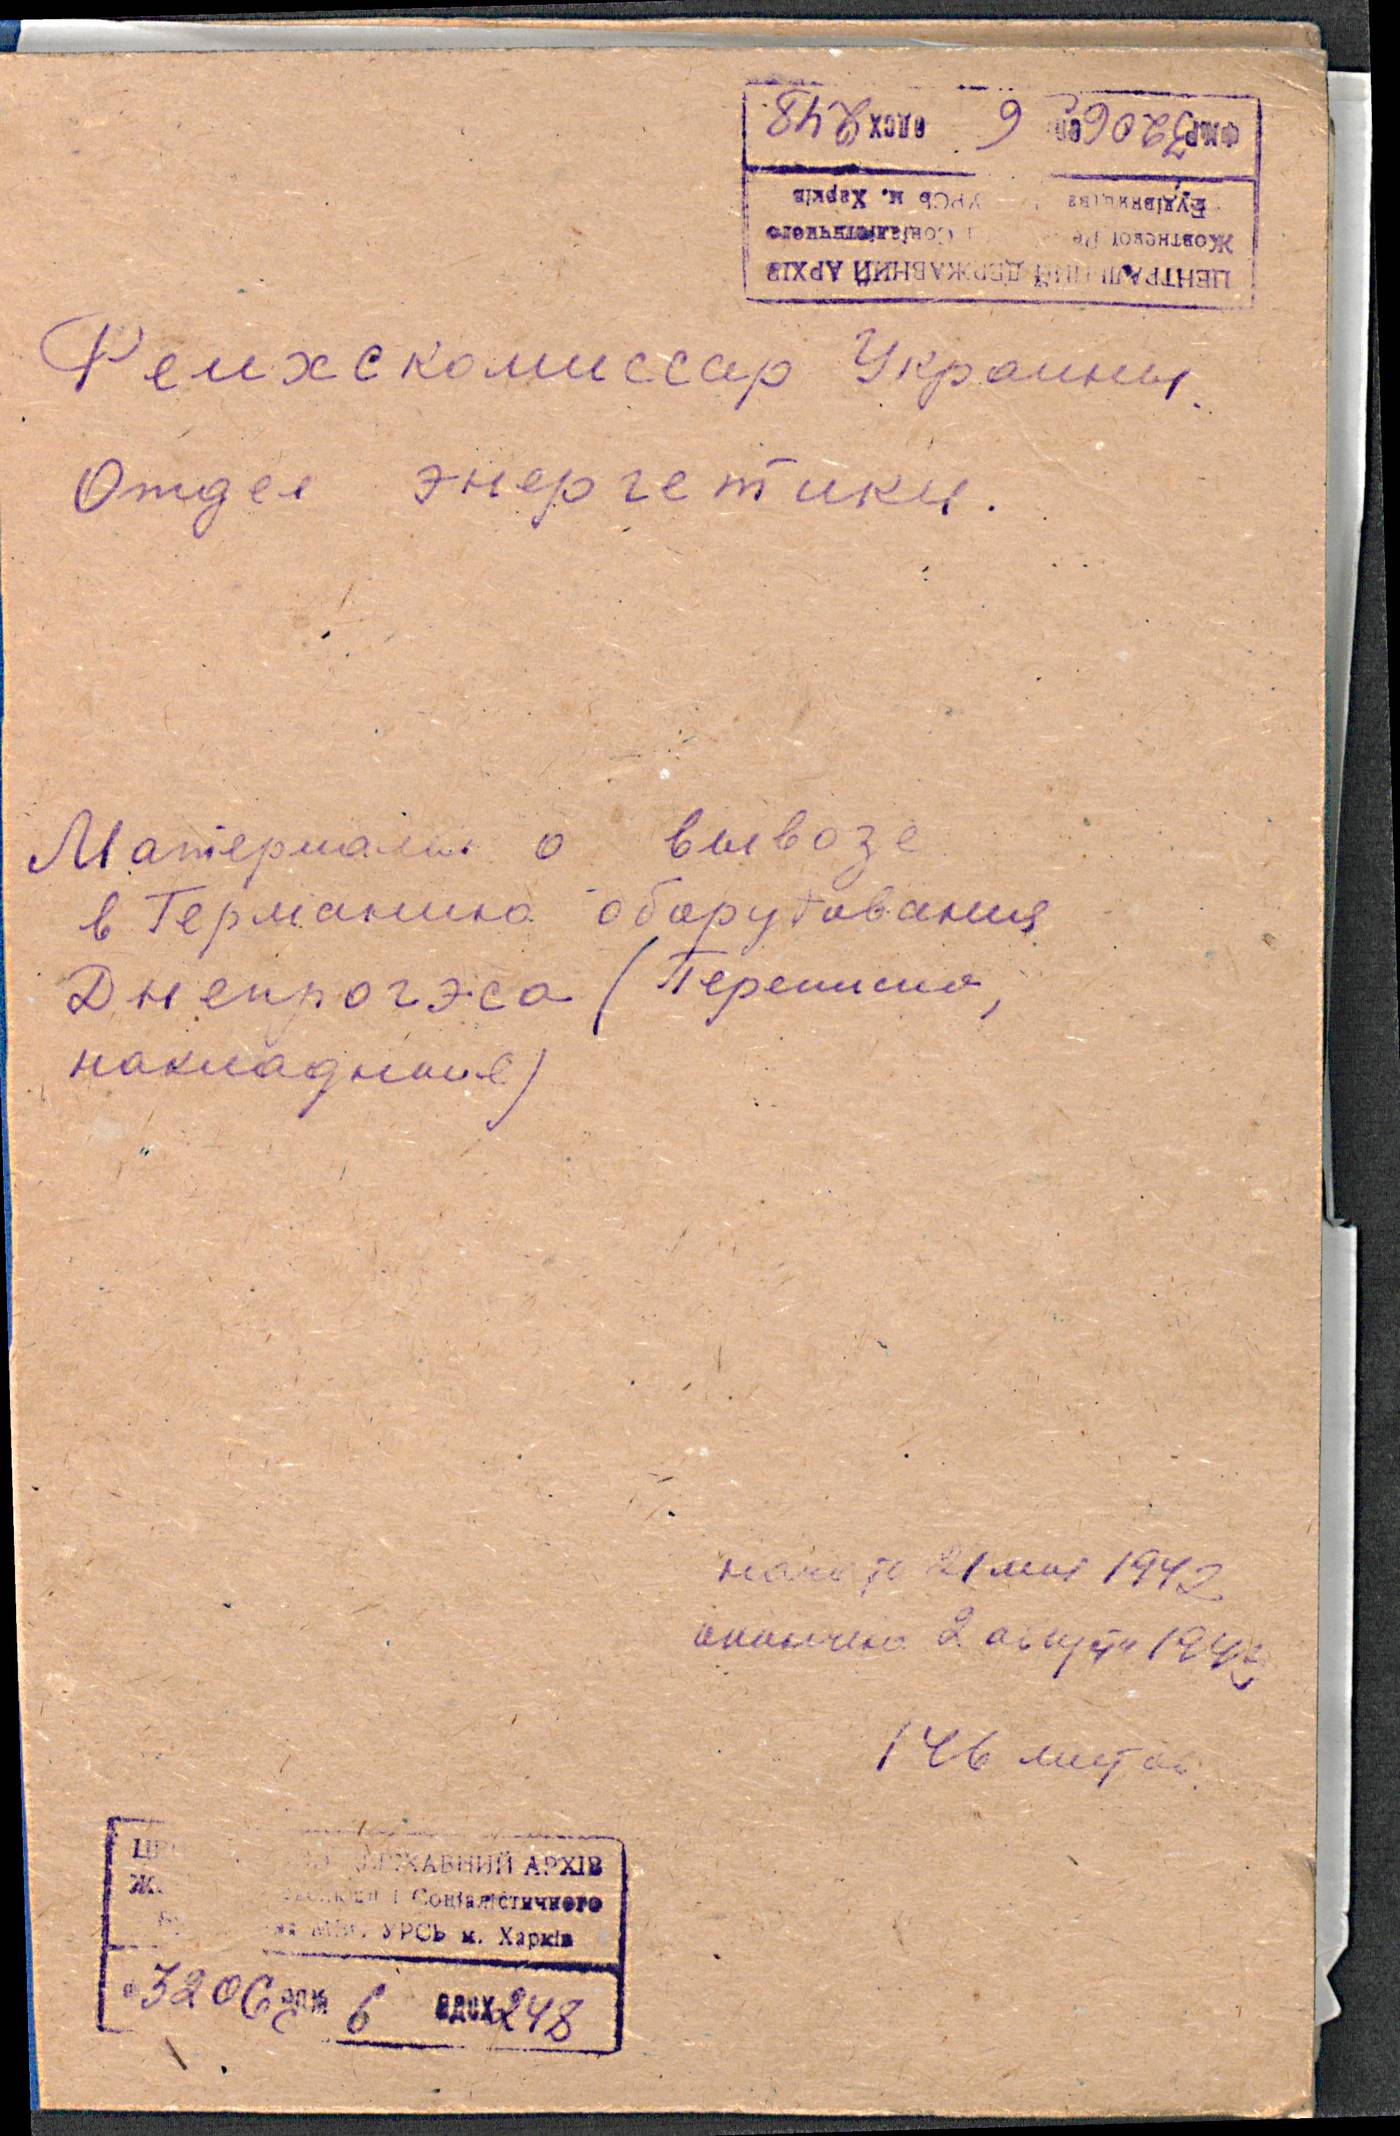 ЦЕНТРАЛЬНИЙ ДЕРЖАВНИЙ АРХІВ
Жовтневої Ре Соціалістичного
Будівництва УРСР м. Харків
3206 6 одсх 248
Рейхскомиссар Украины.
Отдел энергетики.
Материалы о вывозе
в Германию оборудования
Днепрогэса (Переписка,
накладные)
начато 21 мая 1942
окончено 2 августа
146 листов.
ДЕРЖАВНИЙ АРХІВ
Соціалістичного
УРСР м. Харків
3206 опис 6 одсх 248